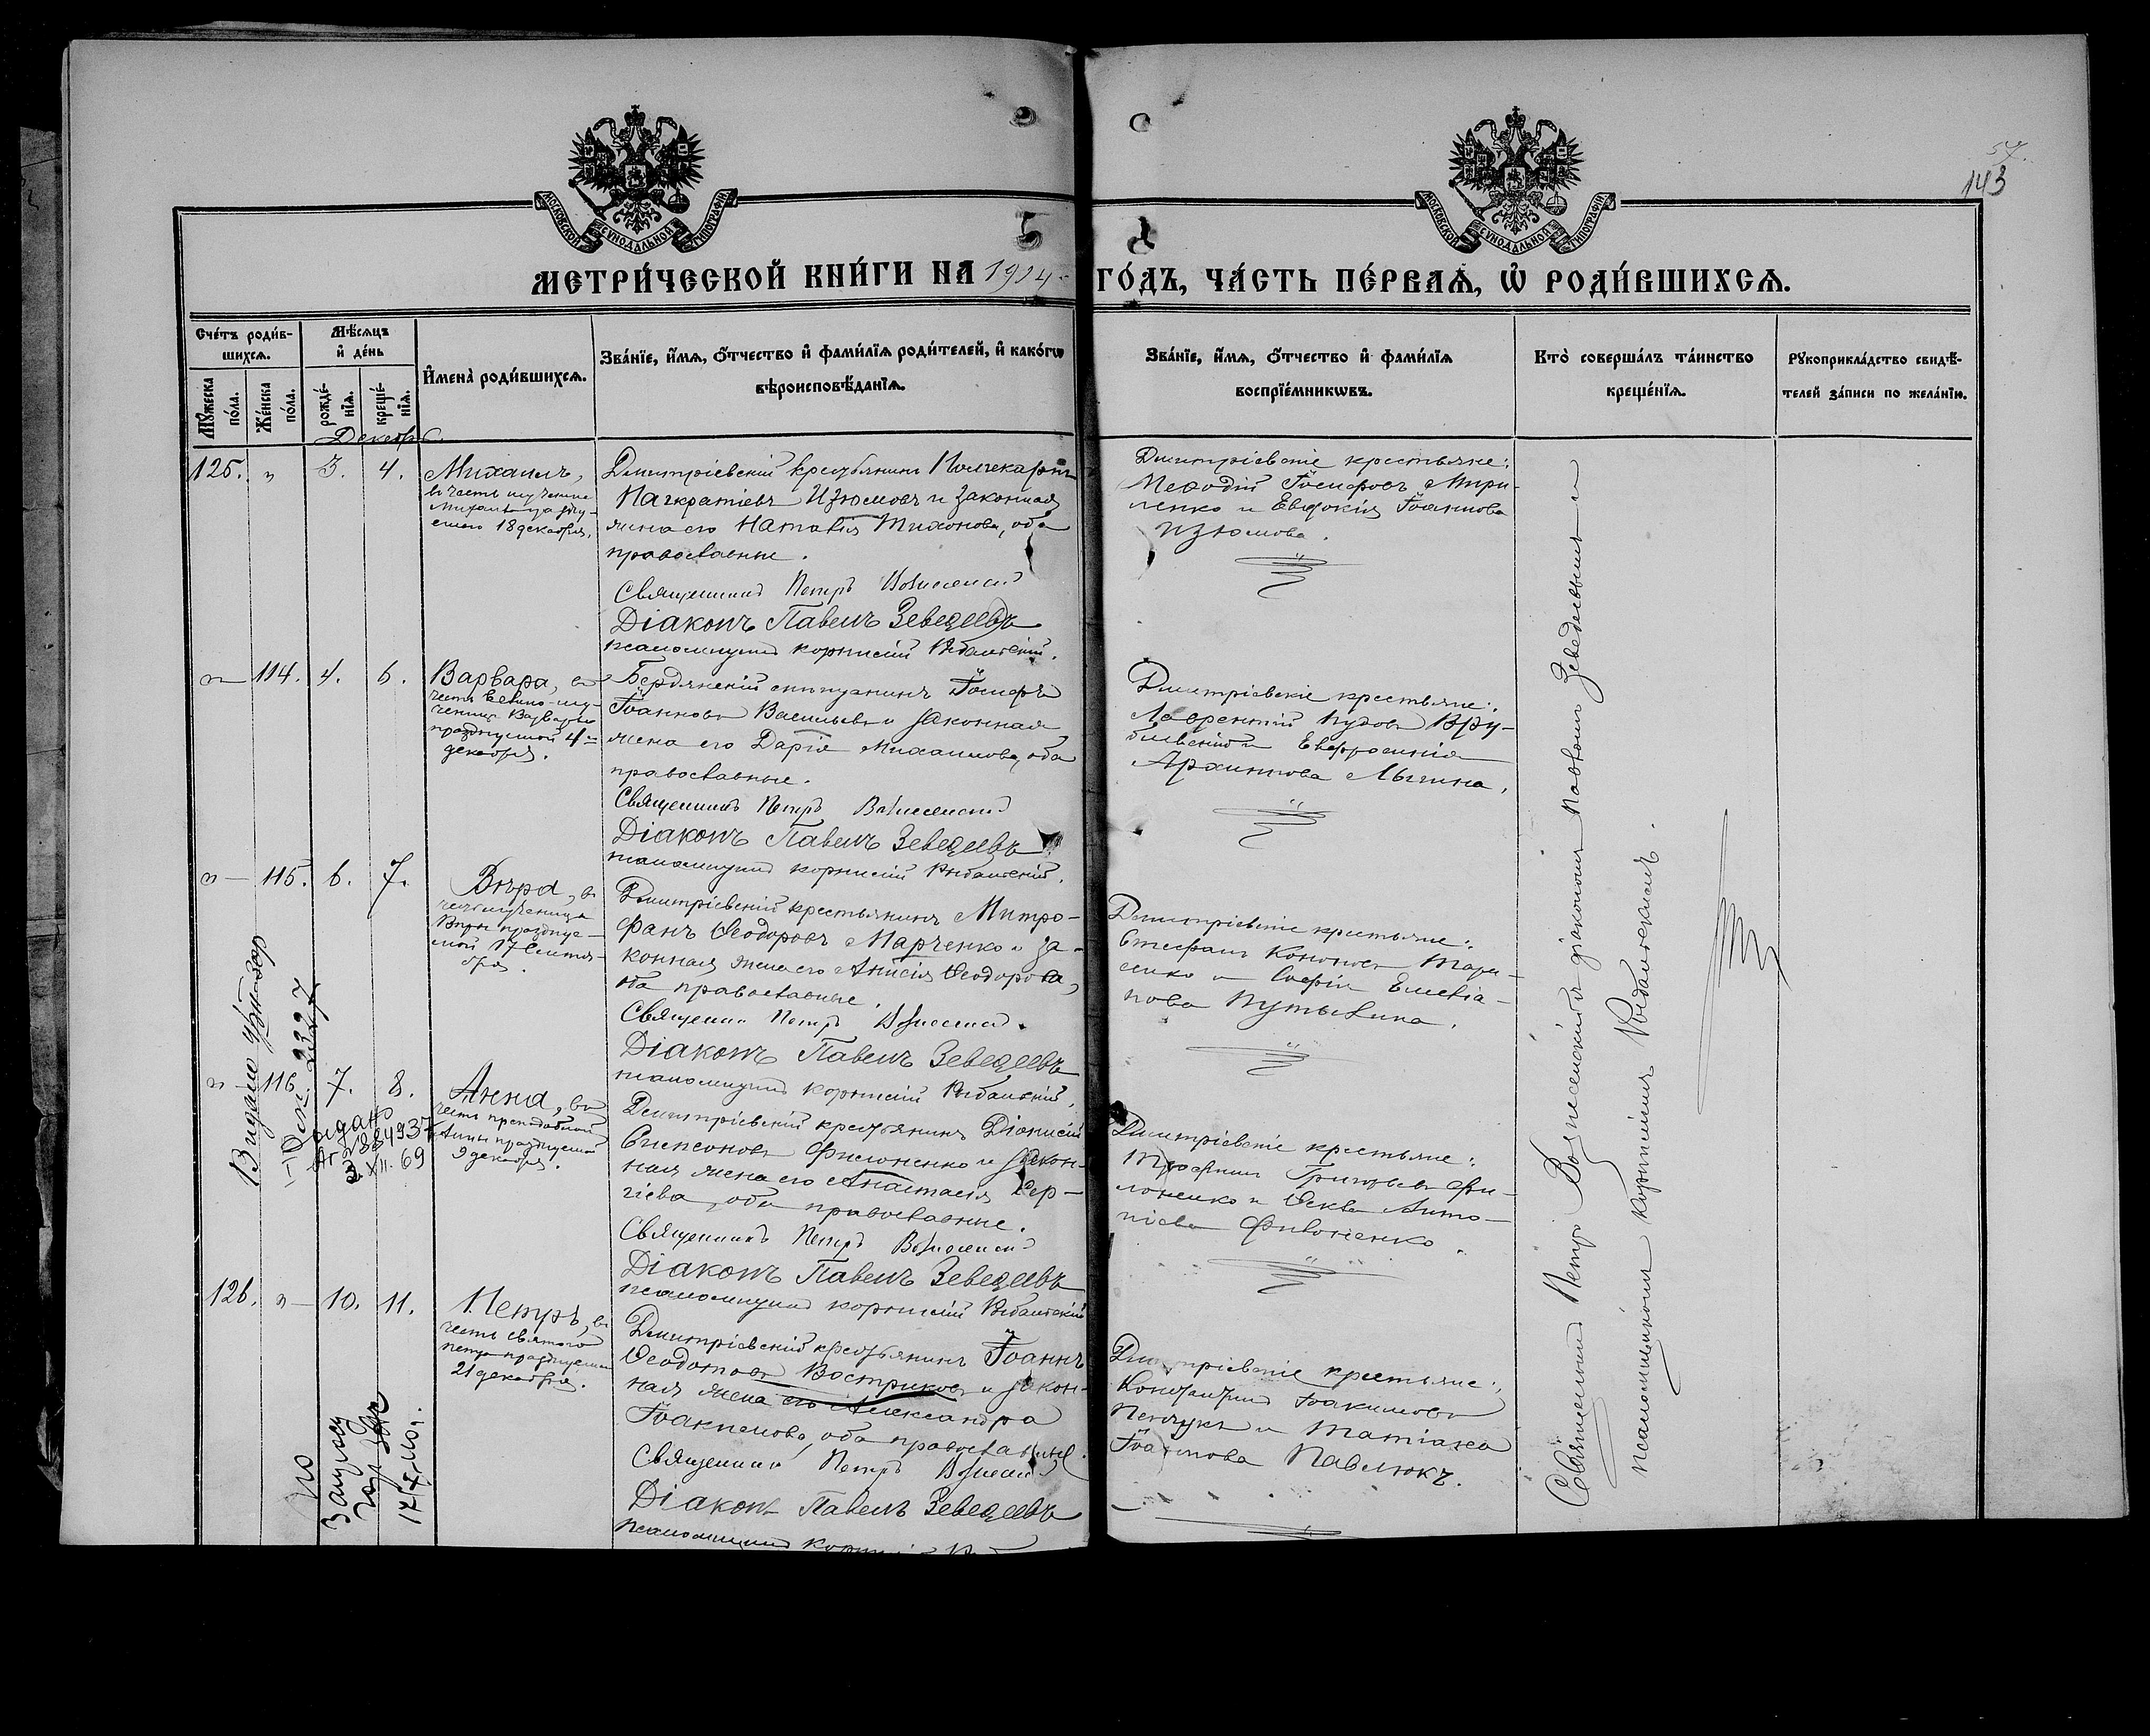 57.
143
МОСКОВСКОЙ СУНОДАЛЬНОЙ ТИПОГРАФІИ
МОСКОВСКОЙ СУНОДАЛЬНОЙ ТИПОГРАФІИ
МЕТРИ́ЧЕСКОЙ КНИ́ГИ НА 1914 ГО́ДЪ, ЧА́СТЬ ПЕ́РВАѦ, Ѽ РОДИ́ВШИХСѦ.
Сче́тъ роди́в-
шихсѧ.
Мꙋжеска по́ла.
Же́нска по́ла.
Мѣ́сѧцъ
и҆ де́нь
рожде́-
нїѧ.
креще́-
нїѧ.
И҆мена̀ роди́вшихсѧ.
Зва́нїе, и҆́мѧ, ѻ҆́тчество и҆ фами́лїѧ роди́телей, и҆ како́гѡ
вѣроисповѣ́данїѧ.
Зва́нїе, и҆́мѧ, ѻ҆́тчество и҆ фами́лїѧ
воспрїе́мникѡвъ.
Кто̀ соверша́лъ та́инство
креще́нїѧ.
Рꙋкоприкла́дство свидѣ́-
телей за́писи по жела́нїю.
Декабрь
125. " 3. 4.
Михаилъ,
въ честь мученика
Михаила
18 декабря.
Дмитріевскій крестьянинъ Поликарпъ
Панкратіевъ Изюмовъ и законная
жена его Наталія Тихонова, оба
православные.
Священникъ Петръ Вознесенскій
Діаконъ Павелъ Зеведеевъ
псаломщикъ Корнилій Рыбальскій.
Дмитріевскіе крестьяне:
Меѳодій Іосифовъ Мири-
ненко и Евдокія Іоаннова
Изюмова.
" 114. 4. 6.
Варвара, въ
честь велико-му-
ченицы Варвары
празднуемой 4-го
декабря.
Бердянскій мѣщанинъ Іосифъ
Іоанновъ Васильевъ и законная
жена его Дарія Михаилова, оба
православные.
Священникъ Петръ Вознесенскій
Діаконъ Павелъ Зеведеевъ
псаломщикъ Корнилій Рыбальскій.
Дмитріевскіе крестьяне:
Лаврентій Пудовъ Вру-
блевскій и Евфросинія
Архиппова Лычина.
" 115. 6. 7.
Вѣра, въ
честь мученицы
Вѣры празднуе-
мой 17 Сентя-
бря.
Дмитріевскій крестьянинъ Митро-
фанъ Ѳеодоровъ Марченко и за-
конная жена его Анисія Ѳеодорова,
оба православные.
Священникъ Петръ Вознесенскій
Діаконъ Павелъ Зеведеевъ
псаломщикъ Корнилій Рыбальскій.
Дмитріевскіе крестьяне:
Стефанъ Кононовъ Мари-
ненко и Софія Емелiа-
нова Путывлина.
" 116. 7. 8.
Анна, въ
честь преподобной
Анны празднуемой
9 декабря.
Дмитріевскій крестьянинъ Діонисій
Симеоновъ Филоненко и закон-
ная жена его Анастасія Сер-
гіева, оба православные.
Священникъ Петръ Вознесенскій
Діаконъ Павелъ Зеведеевъ
псаломщикъ Корнилій Рыбальскій
Дмитріевскіе крестьяне:
Трофимъ Григорьевъ Фи-
лоненко и Ѳекла Анто-
ніева Филоненко.
126. " 10. 11.
Петръ, въ
честь святого
Петра празднуемаго
21 декабря.
Дмитріевскій крестьянинъ Іоаннъ
Ѳеодотовъ Востриковъ и закон-
ная жена его Александра
Іоакимова, оба православные.
Священникъ Петръ Вознесенскій
Діаконъ Павелъ Зеведеевъ
псаломщикъ
Дмитріевскіе крестьяне:
Константинъ Іоакимовъ
и Татіана
Іоаннова Павлюкъ.
Священникъ Петръ Вознесенскій съ діакономъ Павломъ Зеведеевымъ и
псаломщикомъ Корниліемъ Рыбальскимъ.
2327
видано
884937
XII. 69